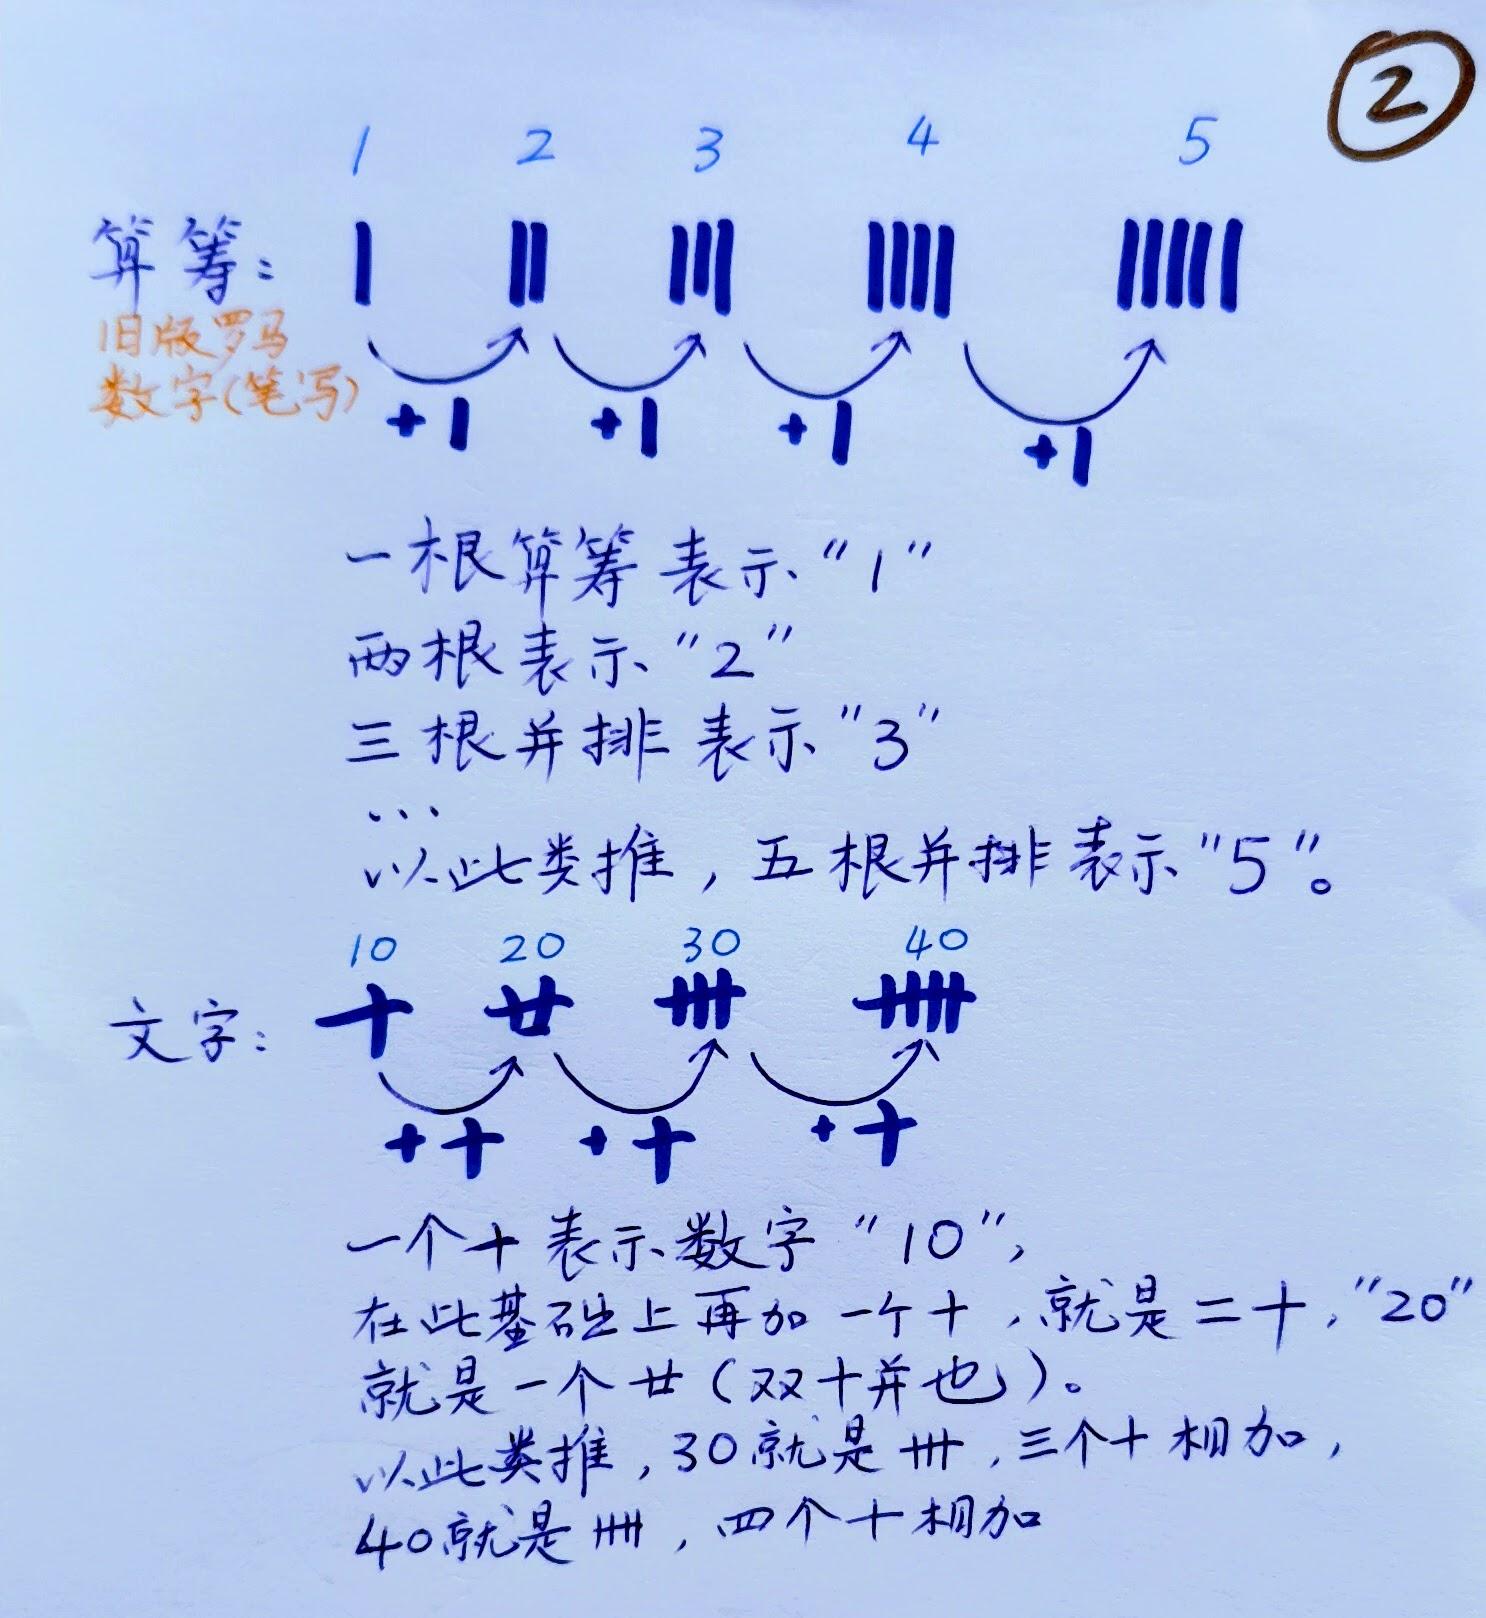 ②
1 2 3 4 5
算筹: | || ||| |||| |||||
旧版罗马
数字(笔写)
+| +| +| +|
一根算筹表示“1”
两根表示“2”
三根并排表示“3”
...
以此类推，五根并排表示“5”。
10 20 30 40
文字: 十 廿 卅 卌
+十 +十 +十
一个十表示数字“10”，
在此基础上再加一个十，就是二十，“20”
就是一个廿（双十并也）。
以此类推，30就是卅，三个十相加，
40就是卌，四个十相加